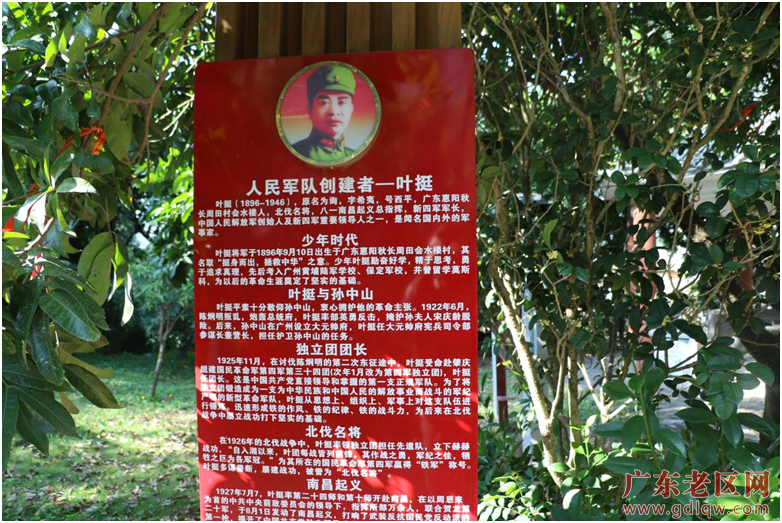 人民军队创建者—叶挺
叶挺（1896-1946），原名为询，字希夷，号西平，广东惠阳秋
长周田村会水楼人，北伐名将，八一南昌起义总指挥，新四军军长，
中国人民解放军创始人及新四军重要领导人之一，是闻名国内外的军
事家。
少年时代
叶挺将军于1896年9月10日出生于广东惠阳秋长周田会水楼村，其
名取“挺身而出，拯救中华”之意。少年叶挺勤奋好学，精于思考，勇
于追求真理，先后考入广州黄埔陆军学校、保定军校，并曾留学莫斯
科，为以后的革命生涯奠定了坚实的基础。
叶挺与孙中山
叶挺平素十分敬仰孙中山，衷心拥护他的革命主张。1922年6月，
陈炯明叛乱，炮轰总统府，叶挺率部英勇反击，掩护孙夫人宋庆龄脱
险。后来，孙中山在广州设立大元帅府，叶挺任大元帅府宪兵司令部
参谋长兼营长，担任护卫孙中山的任务。
独立团团长
1925年11月，在讨伐陈炯明的第二次东征途中，叶挺受命赴肇庆
组建国民革命军第四军第三十四团(次年1月改为第四军独立团)，叶挺
任团长。这是中国共产党直接领导和掌握的第一支正规军队。为了将
独立团锻造成为一支为中华民族和中国人民的解放事业而战斗的军纪
严明的新型革命军队，叶挺从思想上、组织上、军事上对这支队伍进
行锤炼，迅速形成铁的作风、铁的纪律、铁的战斗力，为后来在北伐
战争中屡立战功打下坚实的基础。
北伐名将
在1926年的北伐战争中，叶挺率领独立团担任先遣队，立下赫赫
战功，“自入湘以来，叶团每战皆列重锋，其作战之勇，军纪之佳，牺
牲之巨为各军冠。”为其所在的国民革命军第四军赢得“铁军”称号。
叶挺多谋善断，屡建战功，被誉为“北伐名将”。
南昌起义
1927年7月7，叶挺率第二十四师和第十师开赴南昌，在以周恩来
为首的中共中央前敌委员会的领导下，指挥所部万余人，联合贺龙第
二十军，于8月1日发动了南昌起义，打响了武装反抗国民党反动派的
广东老区网
www.gdlqw.com